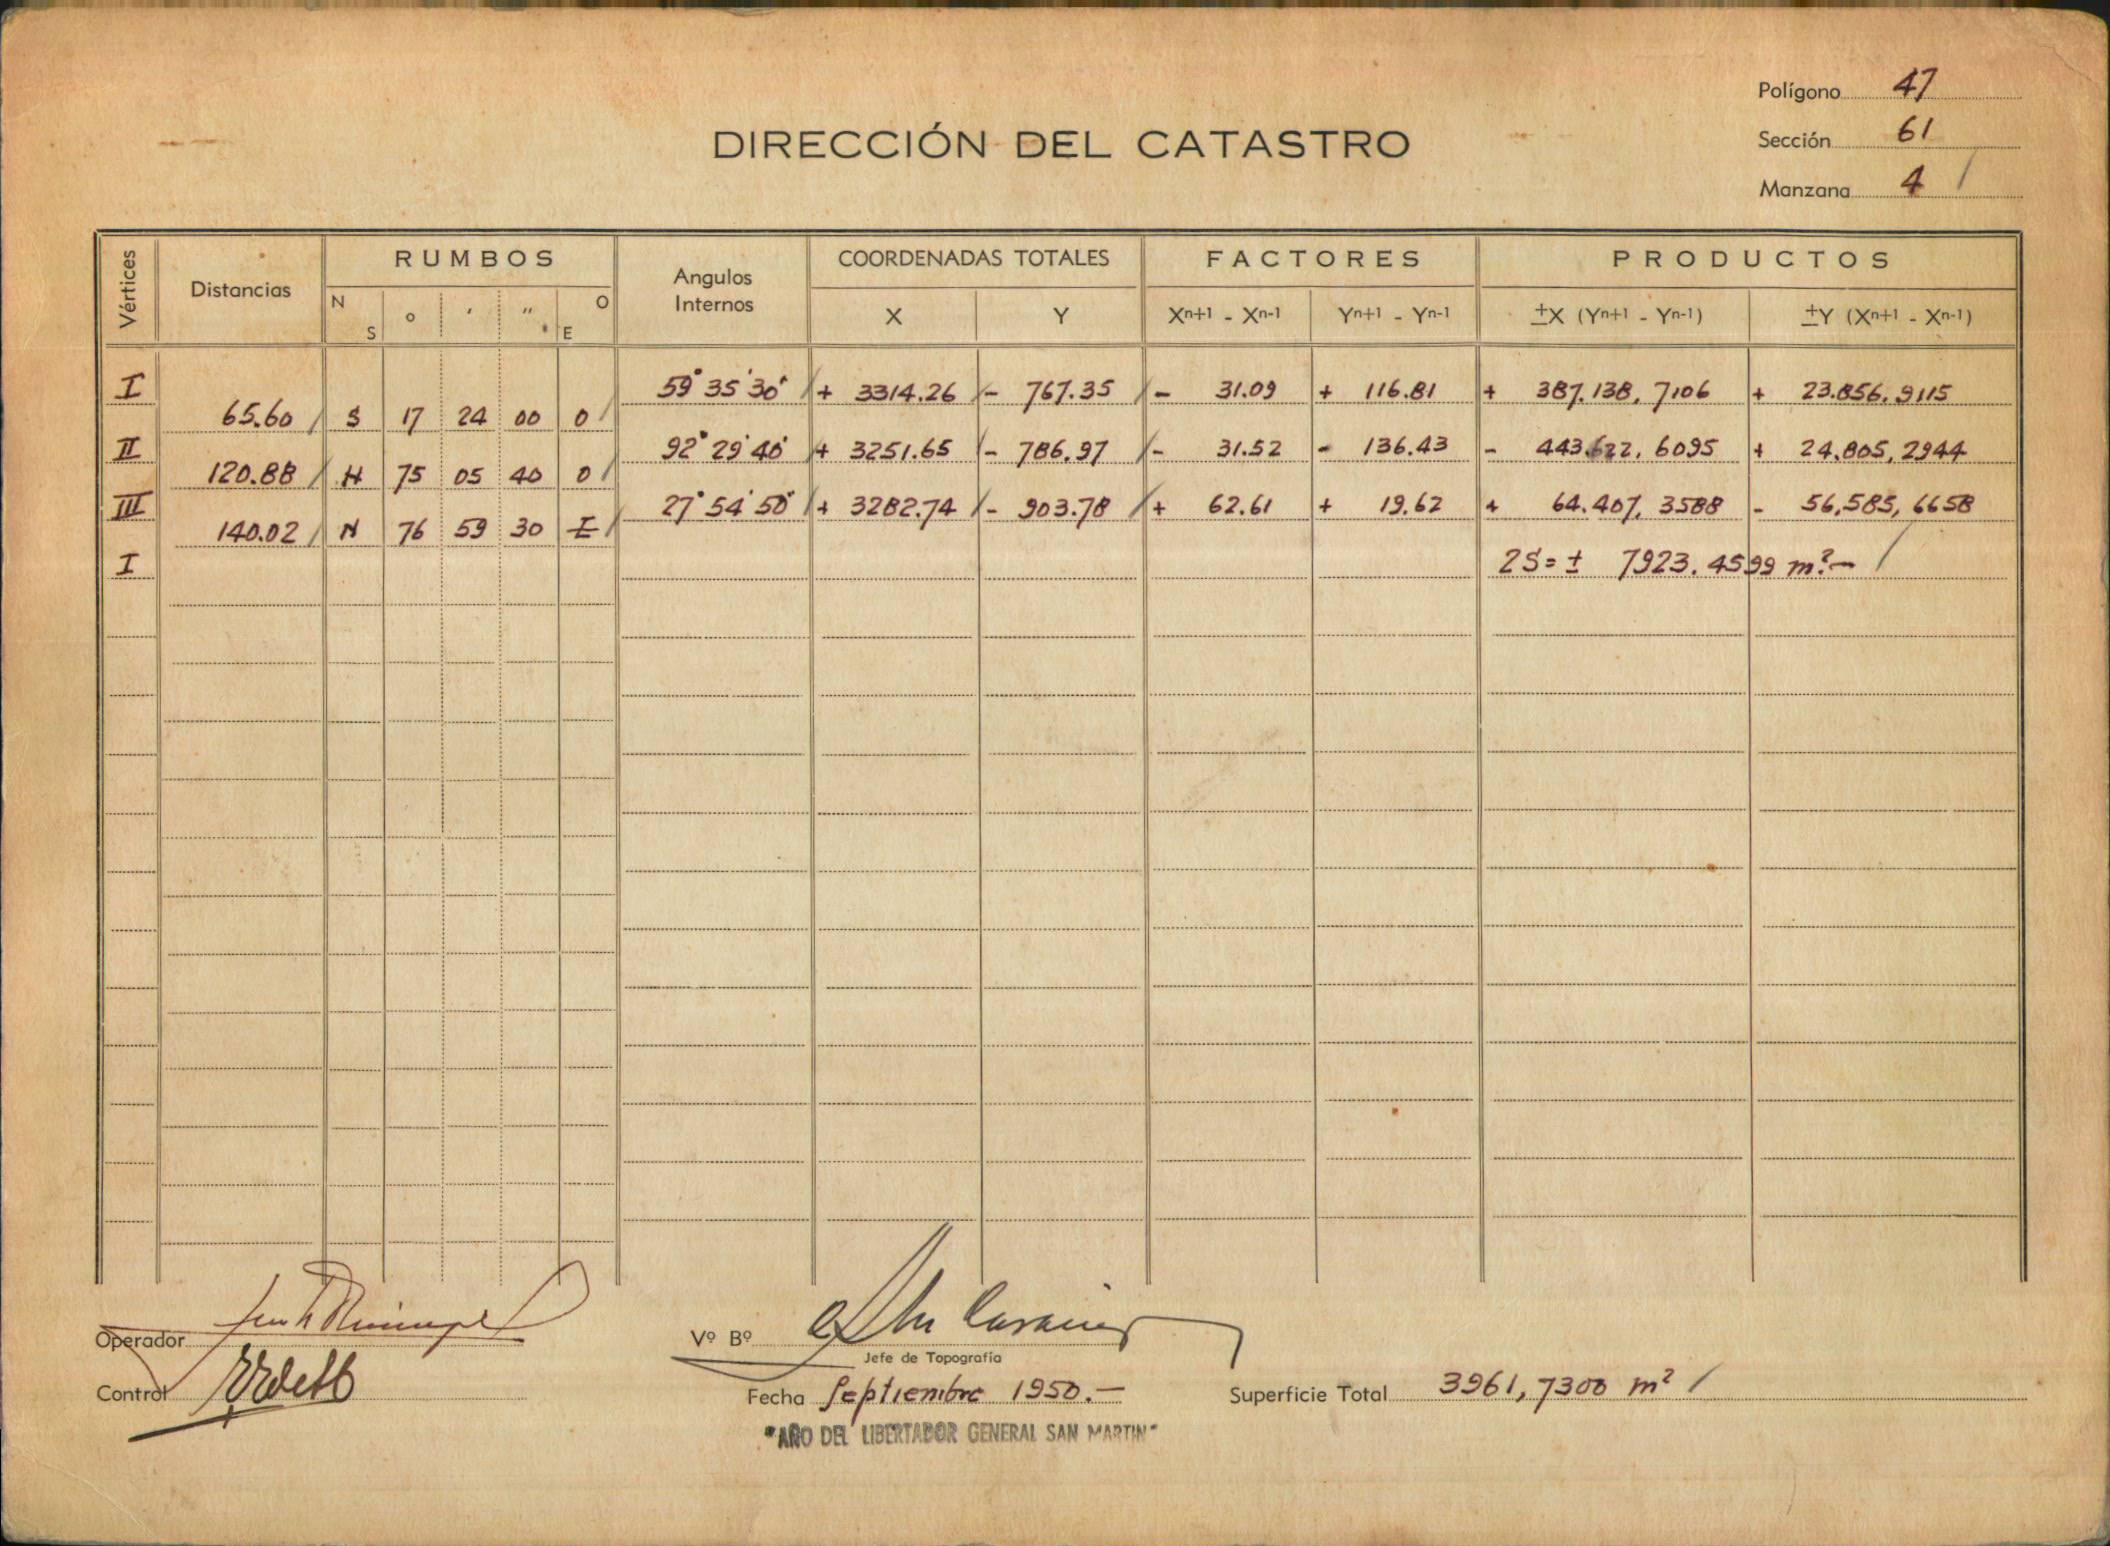 Polígono 47
DIRECCIÓN DEL CATASTRO
Sección 61
Manzana 4 /
Vértices Distancias RUMBOS Angulos Internos COORDENADAS TOTALES FACTORES PRODUCTOS
N S ° ' " O E X Y Xn+1 - Xn-1 Yn+1 - Yn-1 ±X (Yn+1 - Yn-1) ±Y (Xn+1 - Xn-1)
I 59° 35' 30" / + 3314.26 / - 767.35 / - 31.09 + 116.81 + 387.138,7106 + 23.856,9115
65.60 / S 17 24 00 O /
II 92° 29' 40" / + 3251.65 / - 786.97 / - 31.52 - 136.43 - 443.622,6095 + 24.805,2944
120.88 / N 75 05 40 O /
III 27° 54' 50" / + 3282.74 / - 903.78 / + 62.61 + 19.62 + 64.407,3588 - 56,585,6658
140.02 / N 76 59 30 E /
I 2S = ± 7923.4599 m².- /
Operador
Vº Bº
Jefe de Topografía
Control
Fecha Septiembre 1950.-
Superficie Total 3961,7300 m² /
"AÑO DEL LIBERTADOR GENERAL SAN MARTIN"